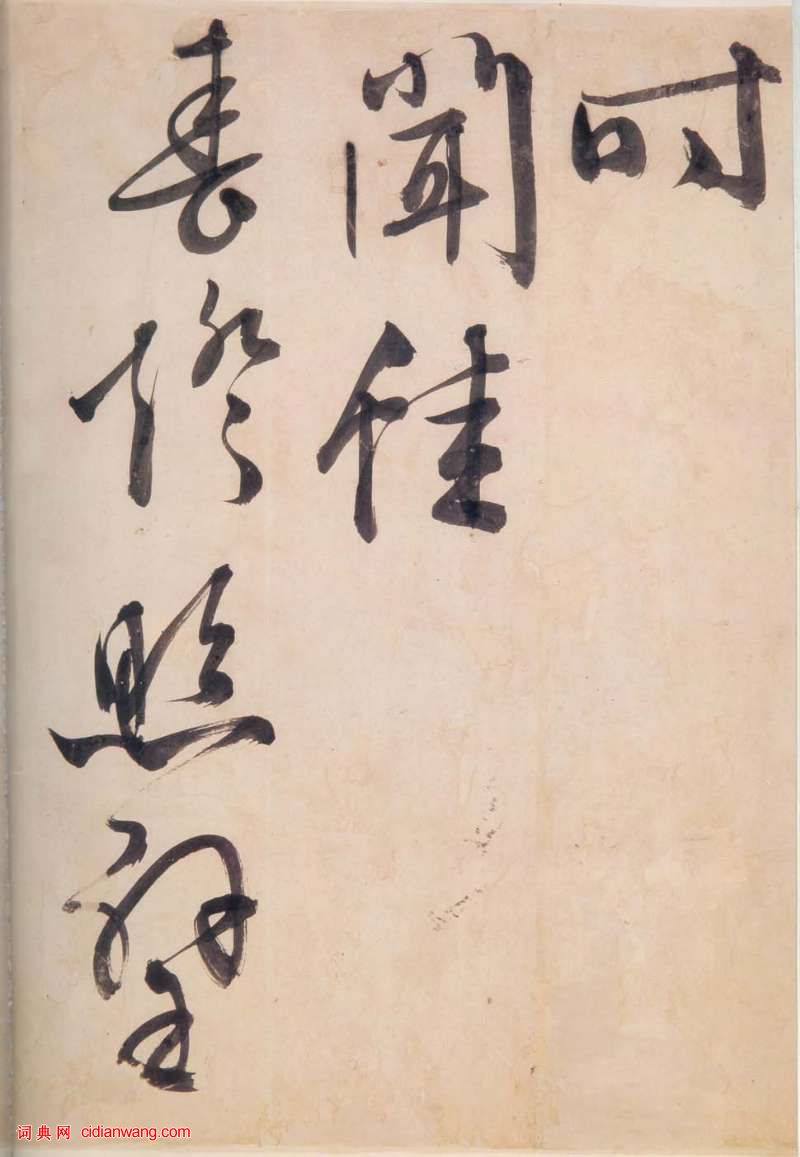 时
聞佳
春燈照壁
词典网 cidianwang.com